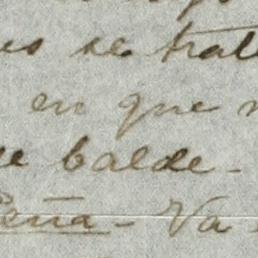 se trat
en que
balde-
Peña - Va